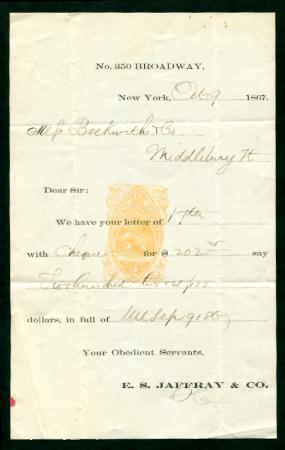 No. 350 BROADWAY,
New York, Oct 9 1867.
Mess Beckwith & Co
Middlebury Vt
Dear Sir:
We have your letter of 17th
with cheque for $ 202 say
Two hundred two
dollars, in full of Sep 9 1867
Your Obedient Servants,
E. S. JAFFRAY & CO.